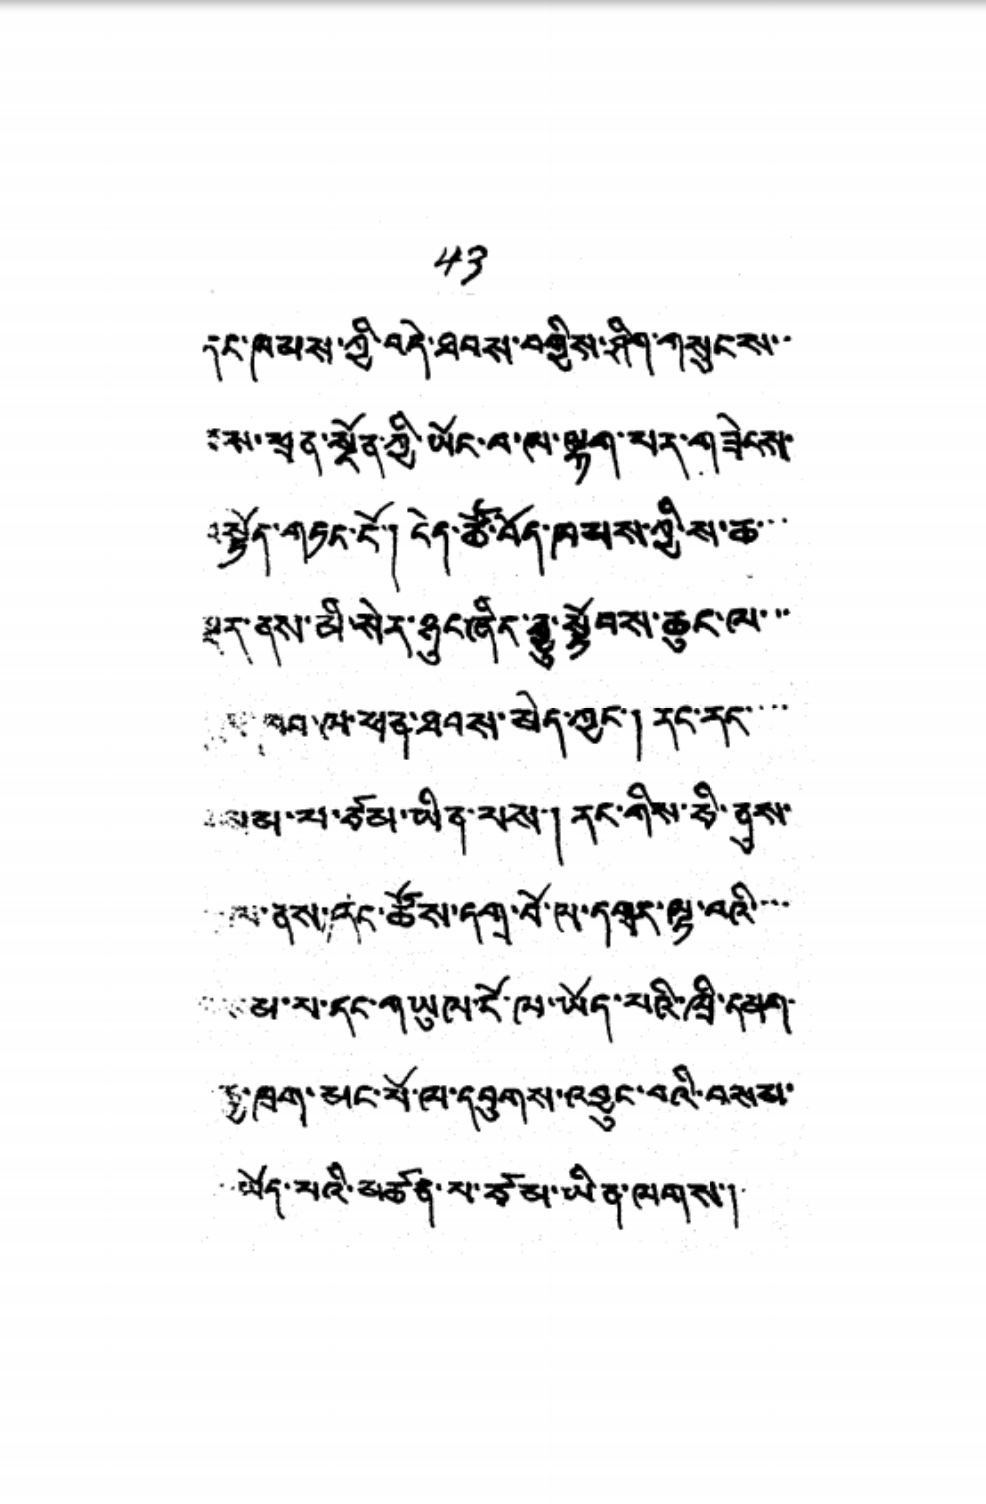 43
དང་ཁམས་ཀྱི་བདེ་ཐབས་བགྱིས་ཤིག་གསུངས་
ས་ཕྲན་སྔོན་ཀྱི་ཡོང་བ་ལ་ལྷག་པར་གཟེངས་
བསྟོད་གཏང་ངོ་། ངེད་ཚོ་བོད་ཁམས་ཀྱིས་ཆ་
སྔར་ནས་མི་སེར་ཉུང་ཞིང་རྒྱུ་སྟོབས་ཆུང་ལ་
ལ་ཕན་ཐབས་མེད་ཀྱང་། རང་རང་
མ་པ་ཙམ་ཡིན་པས་། རང་གིས་ཅི་ནུས་
ལ་ནས་འང་ཚོས་དགྲ་བོ་ལ་དཔར་ལྟ་བའི་
མ་པ་དང་གཡུལ་ངོ་ལ་ཡོད་པའི་ཁྲི་དམག་
ཁྲག་མང་པོ་ལ་དབུགས་འབྱུང་བའི་བསམ་
ཡོད་པའི་མཚོན་པ་ཙམ་ཡིན་ལགས་།